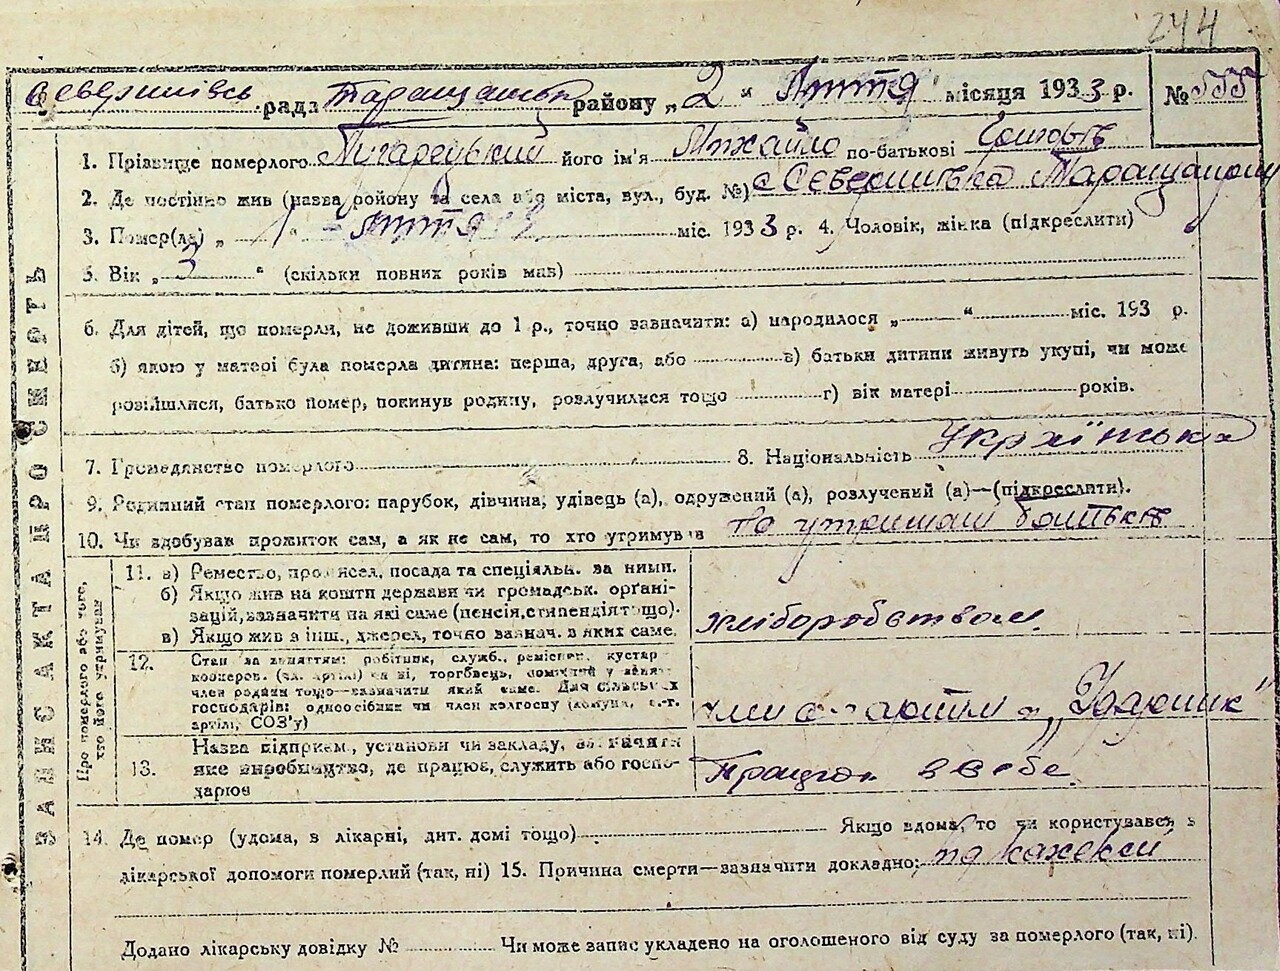 244
Северинівсь. рада Таращанськ району „2" Лютя місяця 1933 р. № 555
1. Прізвище померлого його ім'я Михайло по-батькові
2. Де постінно жив (назва району та села або міста, вул., буд. №) с Северинівка Таращанськ
3. Помер(ла) „1" Лютя міс. 1933 р. 4. Чоловік, жінка (підкреслити)
5. Вік „3" (скільки повних років мав)
6. Для дітей, що померли, не доживши до 1 р., точно зазначити: а) народилося „ " міс. 193 р.
б) якою у матері була померла дитина: перша, друга, або в) батьки дитини живуть укупі, чи може
розійшлися, батько помер, покинув родину, розлучилися тощо г) вік матері років.
7. Громадянство померлого 8. Національність українська
9. Родинний стан померлого: парубок, дівчина, удівець (а), одружений (а), розлучений (а)—(підкреслити).
10. Чи здобував прожиток сам, а як не сам, то хто утримував на утриманї батьків
ЗАПИС АКТА ПРО СМЕРТЬ
Про померлого або того, хто його утримував
11. а) Ремество, промисел, посада та спеціяльн. за ними.
б) Якщо жив на кошти держави чи громадськ. органі-
зацій, зазначити на які саме (пенсія, стипендія тощо).
в) Якщо жив з інш., джерел, точно зазнач. з яких саме.
хліборобством
12. Стан за заняттям: робітник, служб., ремісни, кустар
коопером. (чл. артілі) чи ні, торговець,
член родини тощо—зазначити який саме. Для сільських
господарів: одноосібник чи член колгоспу (комуна, с.-г.
артіль, СОЗ'у)
член с-г артіли „Ударник"
13. Назва підприєм., установи чи закладу, зазначити
яке виробництво, де працює, служить або госпо-
дарює
Працює в себе
14. Де помер (удома, в лікарні, дит. домі тощо) Якщо вдома, то чи користувався з
лікарської допомоги померлий (так, ні) 15. Причина смерти—зазначити докладно:
Додано лікарську довідку № Чи може запис укладено на оголошеного від суду за померлого (так, ні).